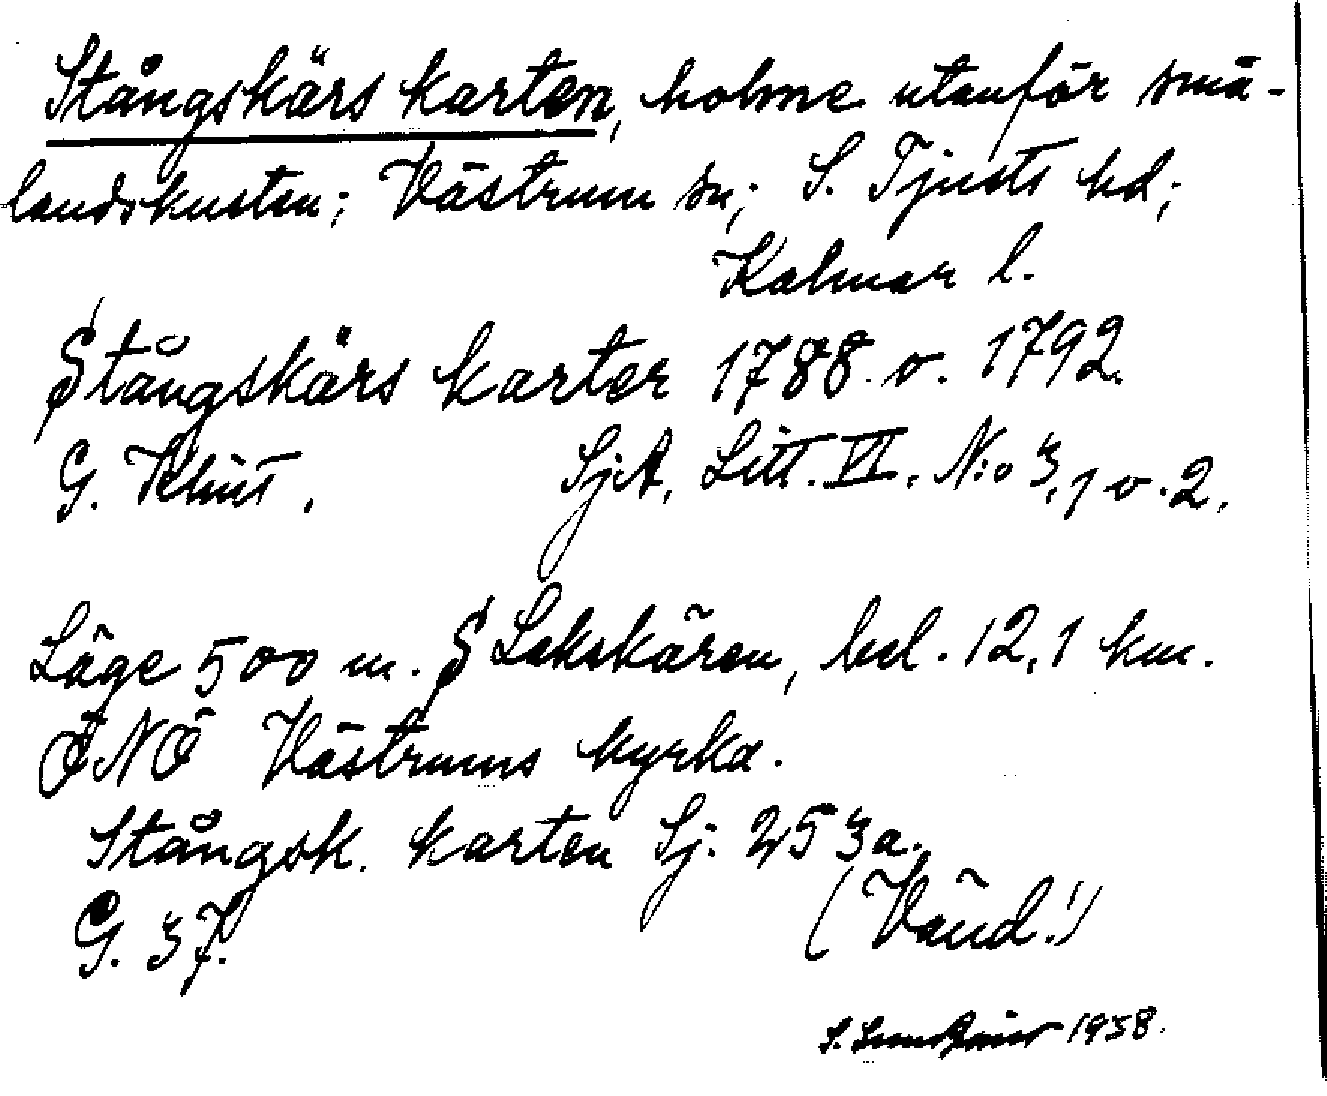 Stångskärs karten, holme utanför små-
landskusten; Västrum sn; S. Tjusts hd;
Kalmar l.
Stångskärs karter 1788 o. 1792.
G. Klint. SjA, Litt. VI. N:o 3, 1 o. 2.
Läge 500 m. S Lekskären, bel. 12,1 km.
ÖNÖ Västrums kyrka.
Stångsk. karten Sj. 253a.
G. 37. (Vänd!)
S. 1938.